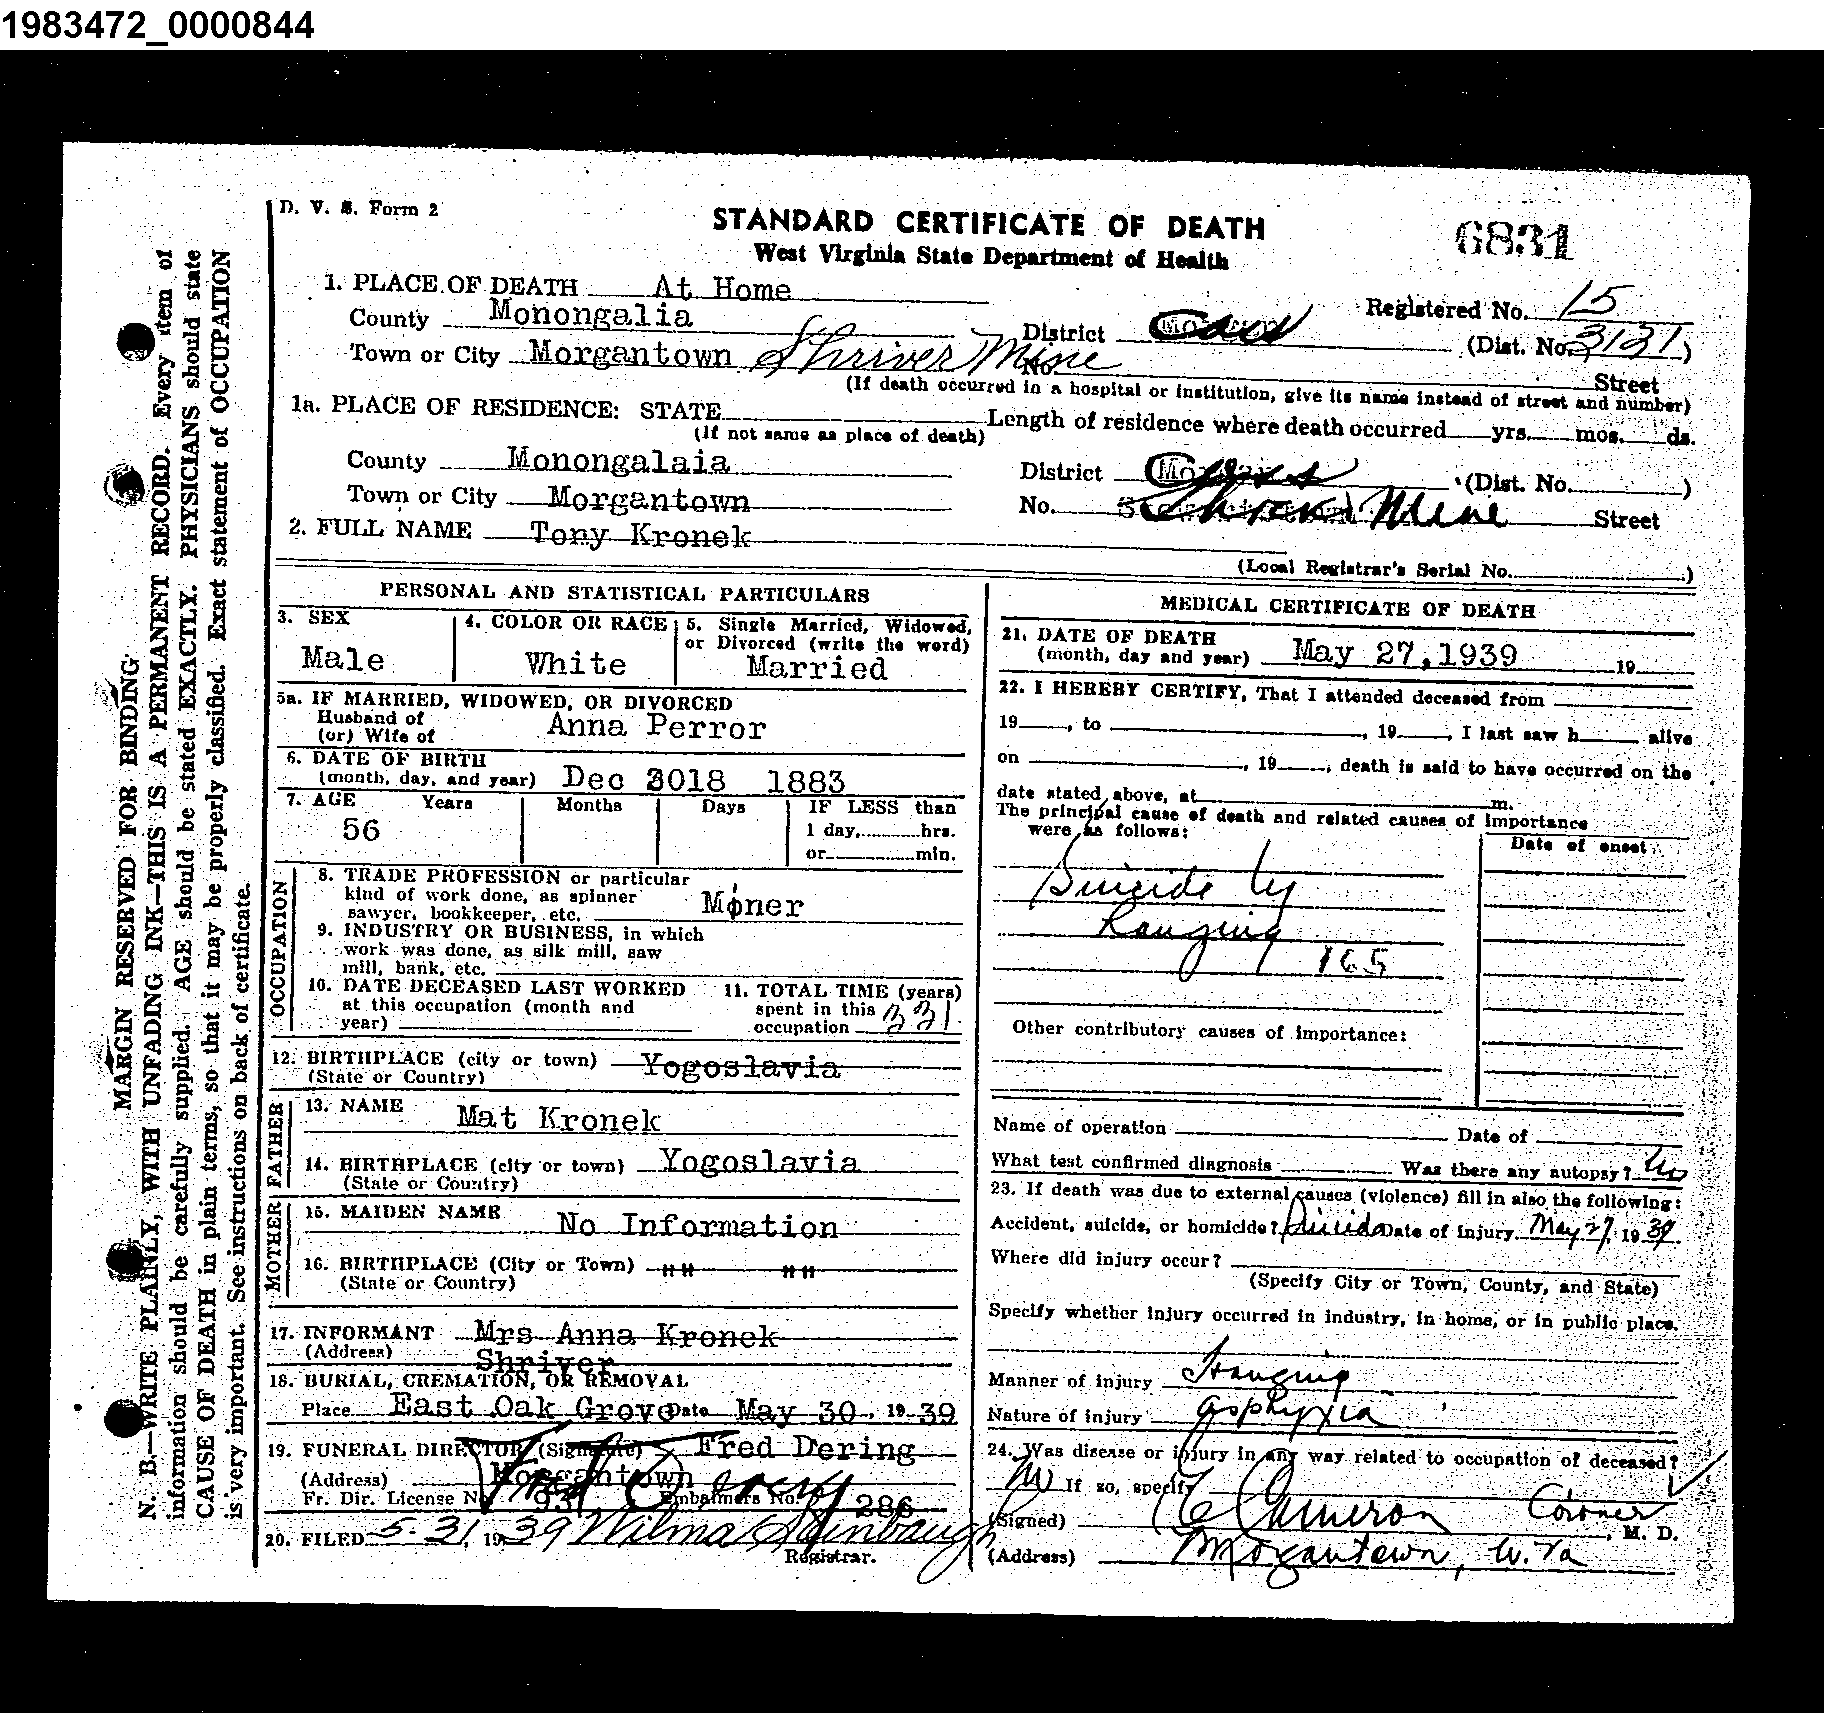 1983472_0000844
D. V. S. Form 2
STANDARD CERTIFICATE OF DEATH
West Virginia State Department of Health
6831
1. PLACE OF DEATH At Home
County Monongalia District Cass Registered No. 15
Town or City Morgantown Shriver Mine No. Street (Dist. No. 3131)
(If death occurred in a hospital or institution, give its name instead of street and number)
1a. PLACE OF RESIDENCE: STATE Length of residence where death occurred yrs. mos. ds.
(If not same as place of death)
County Monongalaia District Cass (Dist. No. )
Town or City Morgantown No. Mine Street
2. FULL NAME Tony Kronek
(Local Registrar's Serial No. )
PERSONAL AND STATISTICAL PARTICULARS
3. SEX
Male
4. COLOR OR RACE
White
5. Single Married, Widowed,
or Divorced (write the word)
Married
5a. IF MARRIED, WIDOWED, OR DIVORCED
Husband of
(or) Wife of Anna Perror
6. DATE OF BIRTH
(month, day, and year) Dec 3018 1883
7. AGE Years Months Days IF LESS than
56 1 day, hrs.
or min.
OCCUPATION
8. TRADE PROFESSION or particular
kind of work done, as spinner
sawyer, bookkeeper, etc. Miner
9. INDUSTRY OR BUSINESS, in which
work was done, as silk mill, saw
mill, bank, etc.
10. DATE DECEASED LAST WORKED
at this occupation (month and
year)
11. TOTAL TIME (years)
spent in this
occupation
12. BIRTHPLACE (city or town) Yogoslavia
(State or Country)
FATHER
13. NAME Mat Kronek
14. BIRTHPLACE (city or town) Yogoslavia
(State or Country)
MOTHER
15. MAIDEN NAME No Information
16. BIRTHPLACE (City or Town) "" ""
(State or Country)
17. INFORMANT Mrs Anna Kronek
(Address) Shriver
18. BURIAL, CREMATION, OR REMOVAL
Place East Oak Grove Date May 30, 1939
19. FUNERAL DIRECTOR (Signature) Fred Dering
(Address) Morgantown Fred Dering
Fr. Dir. License No. 931 Embalmers No. 286
20. FILED 5-31, 1939 Wilma
Registrar.
MEDICAL CERTIFICATE OF DEATH
21. DATE OF DEATH
(month, day and year) May 27, 1939 19
22. I HEREBY CERTIFY, That I attended deceased from
19 , to , 19 , I last saw h alive
on , 19 , death is said to have occurred on the
date stated above, at m.
The principal cause of death and related causes of importance
were as follows:
Date of onset
Suicide by
Hanging
165
Other contributory causes of importance:
Name of operation Date of
What test confirmed diagnosis Was there any autopsy? no
23. If death was due to external causes (violence) fill in also the following:
Accident, suicide, or homicide? Suicide Date of injury May 27 1939
Where did injury occur?
(Specify City or Town, County, and State)
Specify whether injury occurred in industry, in home, or in public place.
Manner of injury Hanging
Nature of injury asphyxia
24. Was disease or injury in any way related to occupation of deceased?
no If so, specify
(Signed) Cameron Coroner M. D.
(Address) Morgantown, W. Va
MARGIN RESERVED FOR BINDING
N. B.—WRITE PLAINLY, WITH UNFADING INK—THIS IS A PERMANENT RECORD. Every item of
information should be carefully supplied. AGE should be stated EXACTLY. PHYSICIANS should state
CAUSE OF DEATH in plain terms, so that it may be properly classified. Exact statement of OCCUPATION
is very important. See instructions on back of certificate.